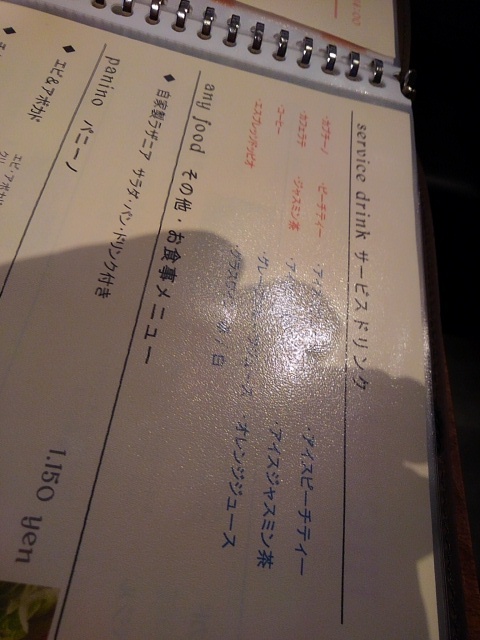 service drink サービスドリンク
・カプチーノ ・ピーチティー ・アイス ・アイスピーチティー
・カフェラテ ・ジャスミン茶 ・アイ ・アイスジャスミン茶
・コーヒー ・グレープフルーツジュース ・オレンジジュース
・グラスワイン 赤・白
any food その他・お食事メニュー
◆ 自家製ラザニア サラダ・パン・ドリンク付き 1.150 yen
panino パニーノ
◆ エビ&アボカド エビ・アボカド